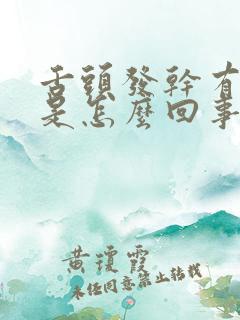 舌頭發幹有
是怎麼回事
黃瓊霞
未經同意禁止轉載